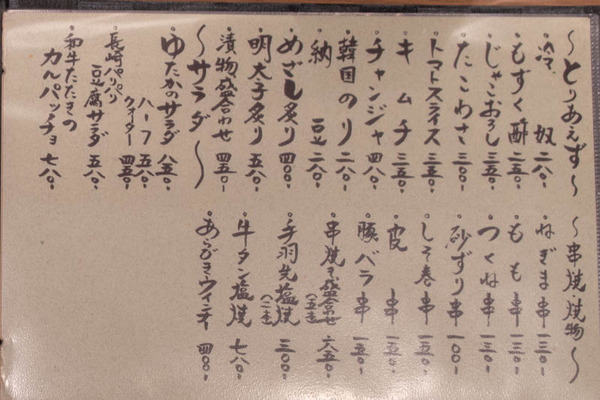 ～とりあえず～
。冷奴 二八〇-
。もずく酢 二五〇-
。じゃこおろし 三五〇-
。たこわさ 三〇〇-
。トマトスライス 三五〇-
。キムチ 三五〇-
。チャンジャ 四八〇-
。韓国のり 二八〇-
。納豆 二八〇-
。めざし炙り 四〇〇-
。明太子炙り 五八〇-
。漬物盛合わせ 四五〇-
～サラダ～
。ゆたかのサラダ 八五〇-
ハーフ 五八〇-
クォーター 四五〇-
。長崎パリパリ
豆腐サラダ 五八〇-
。和牛たたきの
カルパッチョ 七八〇-
～串焼・焼物～
。ねぎま串 一三〇-
。もも串 一三〇-
。つくね串 一三〇-
。砂ずり串 一〇〇-
。しそ巻串 一五〇-
。皮串 一五〇-
。豚バラ串 一五〇-
。串焼き盛合せ
(五本) 六五〇-
。手羽先塩焼
(二本) 三〇〇-
。牛タン塩焼 七八〇-
。あらびきウィンナー 四〇〇-